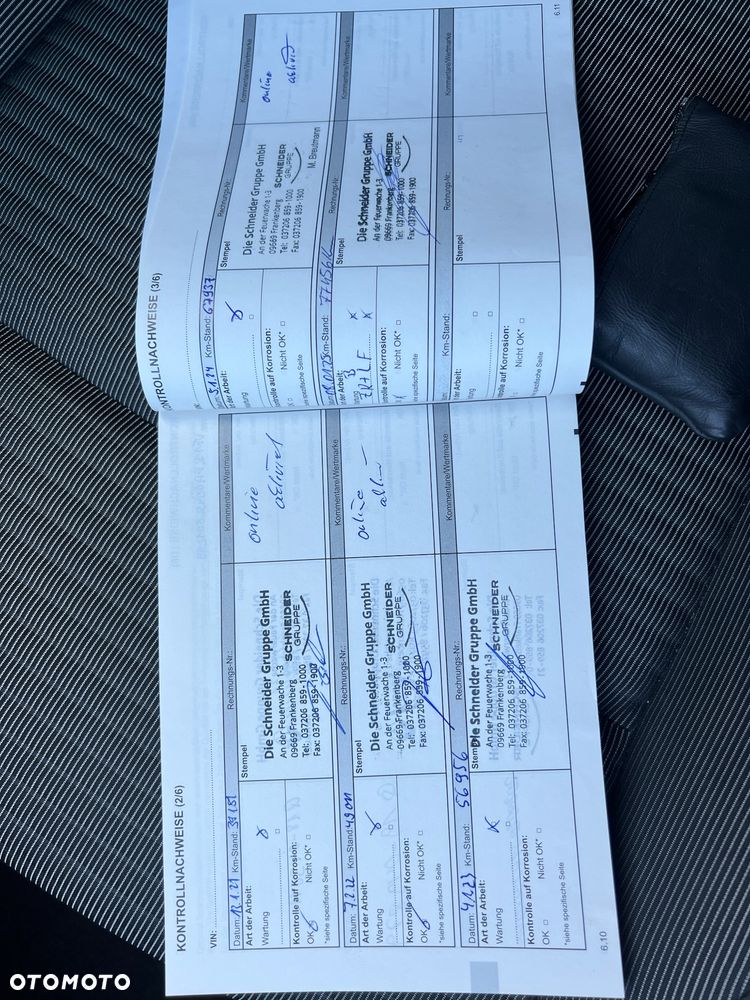 KONTROLLNACHWEISE (2/6)
VIN:
Datum: 13.1.21 Km-Stand: 39151 Rechnungs-Nr.: Kommentare/Wertmarke
Art der Arbeit: Stempel
Wartung
Die Schneider Gruppe GmbH
An der Feuerwache 1-3
09669 Frankenberg
Tel: 037206 859-1000
Fax: 037206 859-1900
SCHNEIDER
GRUPPE
online
Kontrolle auf Korrosion:
OK Nicht OK*
*siehe spezifische Seite
Datum: 7.2.22 Km-Stand: 49011 Rechnungs-Nr.: Kommentare/Wertmarke
Art der Arbeit: Stempel
Wartung
Die Schneider Gruppe GmbH
An der Feuerwache 1-3
09669 Frankenberg
Tel: 037206 859-1000
Fax: 037206 859-1900
SCHNEIDER
GRUPPE
online
Kontrolle auf Korrosion:
OK Nicht OK*
*siehe spezifische Seite
Datum: 4.1.23 Km-Stand: 56956 Rechnungs-Nr.: Kommentare/Wertmarke
Art der Arbeit: Stempel
Wartung
Die Schneider Gruppe GmbH
An der Feuerwache 1-3
09669 Frankenberg
Tel: 037206 859-1000
Fax: 037206 859-1900
SCHNEIDER
GRUPPE
Kontrolle auf Korrosion:
OK Nicht OK*
*siehe spezifische Seite
6.10
KONTROLLNACHWEISE (3/6)
5.1.24 Km-Stand: 67937 Rechnungs-Nr.: Kommentare/Wertmarke
der Arbeit: Stempel
Die Schneider Gruppe GmbH
An der Feuerwache 1-3
09669 Frankenberg
Tel: 037206 859-1000
Fax: 037206 859-1900
SCHNEIDER
GRUPPE
M. Breutmann
online
Kontrolle auf Korrosion:
Nicht OK*
spezifische Seite
Km-Stand: 77456 Rechnungs-Nr.: Kommentare/Wertmarke
Arbeit: Stempel
Die Schneider Gruppe GmbH
An der Feuerwache 1-3
09669 Frankenberg
Tel: 037206 859-1000
Fax: 037206 859-1900
SCHNEIDER
GRUPPE
auf Korrosion:
Nicht OK*
spezifische Seite
Km-Stand: Rechnungs-Nr.: Kommentare/Wertmarke
der Arbeit: Stempel
auf Korrosion:
Nicht OK*
spezifische Seite
6.11
OTOMOTO